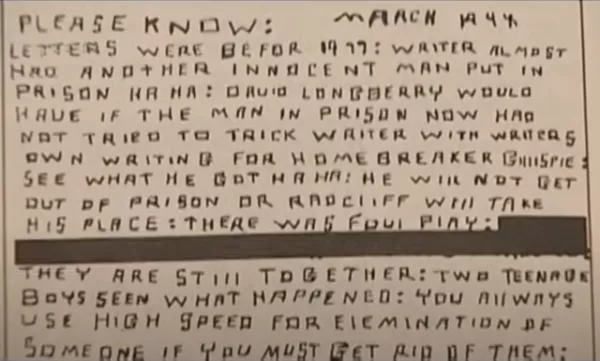 PLEASE KNOW: MARCH 1994
LETTERS WERE BEFOR 1977: WRITER ALMOST
HAD ANOTHER INNOCENT MAN PUT IN
PRISON HA HA: DAVID LONGBERRY WOULD
HAVE IF THE MAN IN PRISON NOW HAD
NOT TRIED TO TRICK WRITER WITH WRITERS
OWN WRITING FOR HOMEBREAKER GIllSPIE:
SEE WHAT HE GOT HA HA: HE WIll NOT GET
OUT OF PRISON OR RADCLIFF WIll TAKE
HIS PLACE: THERE WAS FOUl PlAY:
THEY ARE STIll TOGETHER: TWO TEENAGE
BOYS SEEN WHAT HAPPENED: YOU AllWAYS
USE HIGH SPEED FOR ELEMINATION OF
SOMEONE IF YOU MUST GET RID OF THEM: